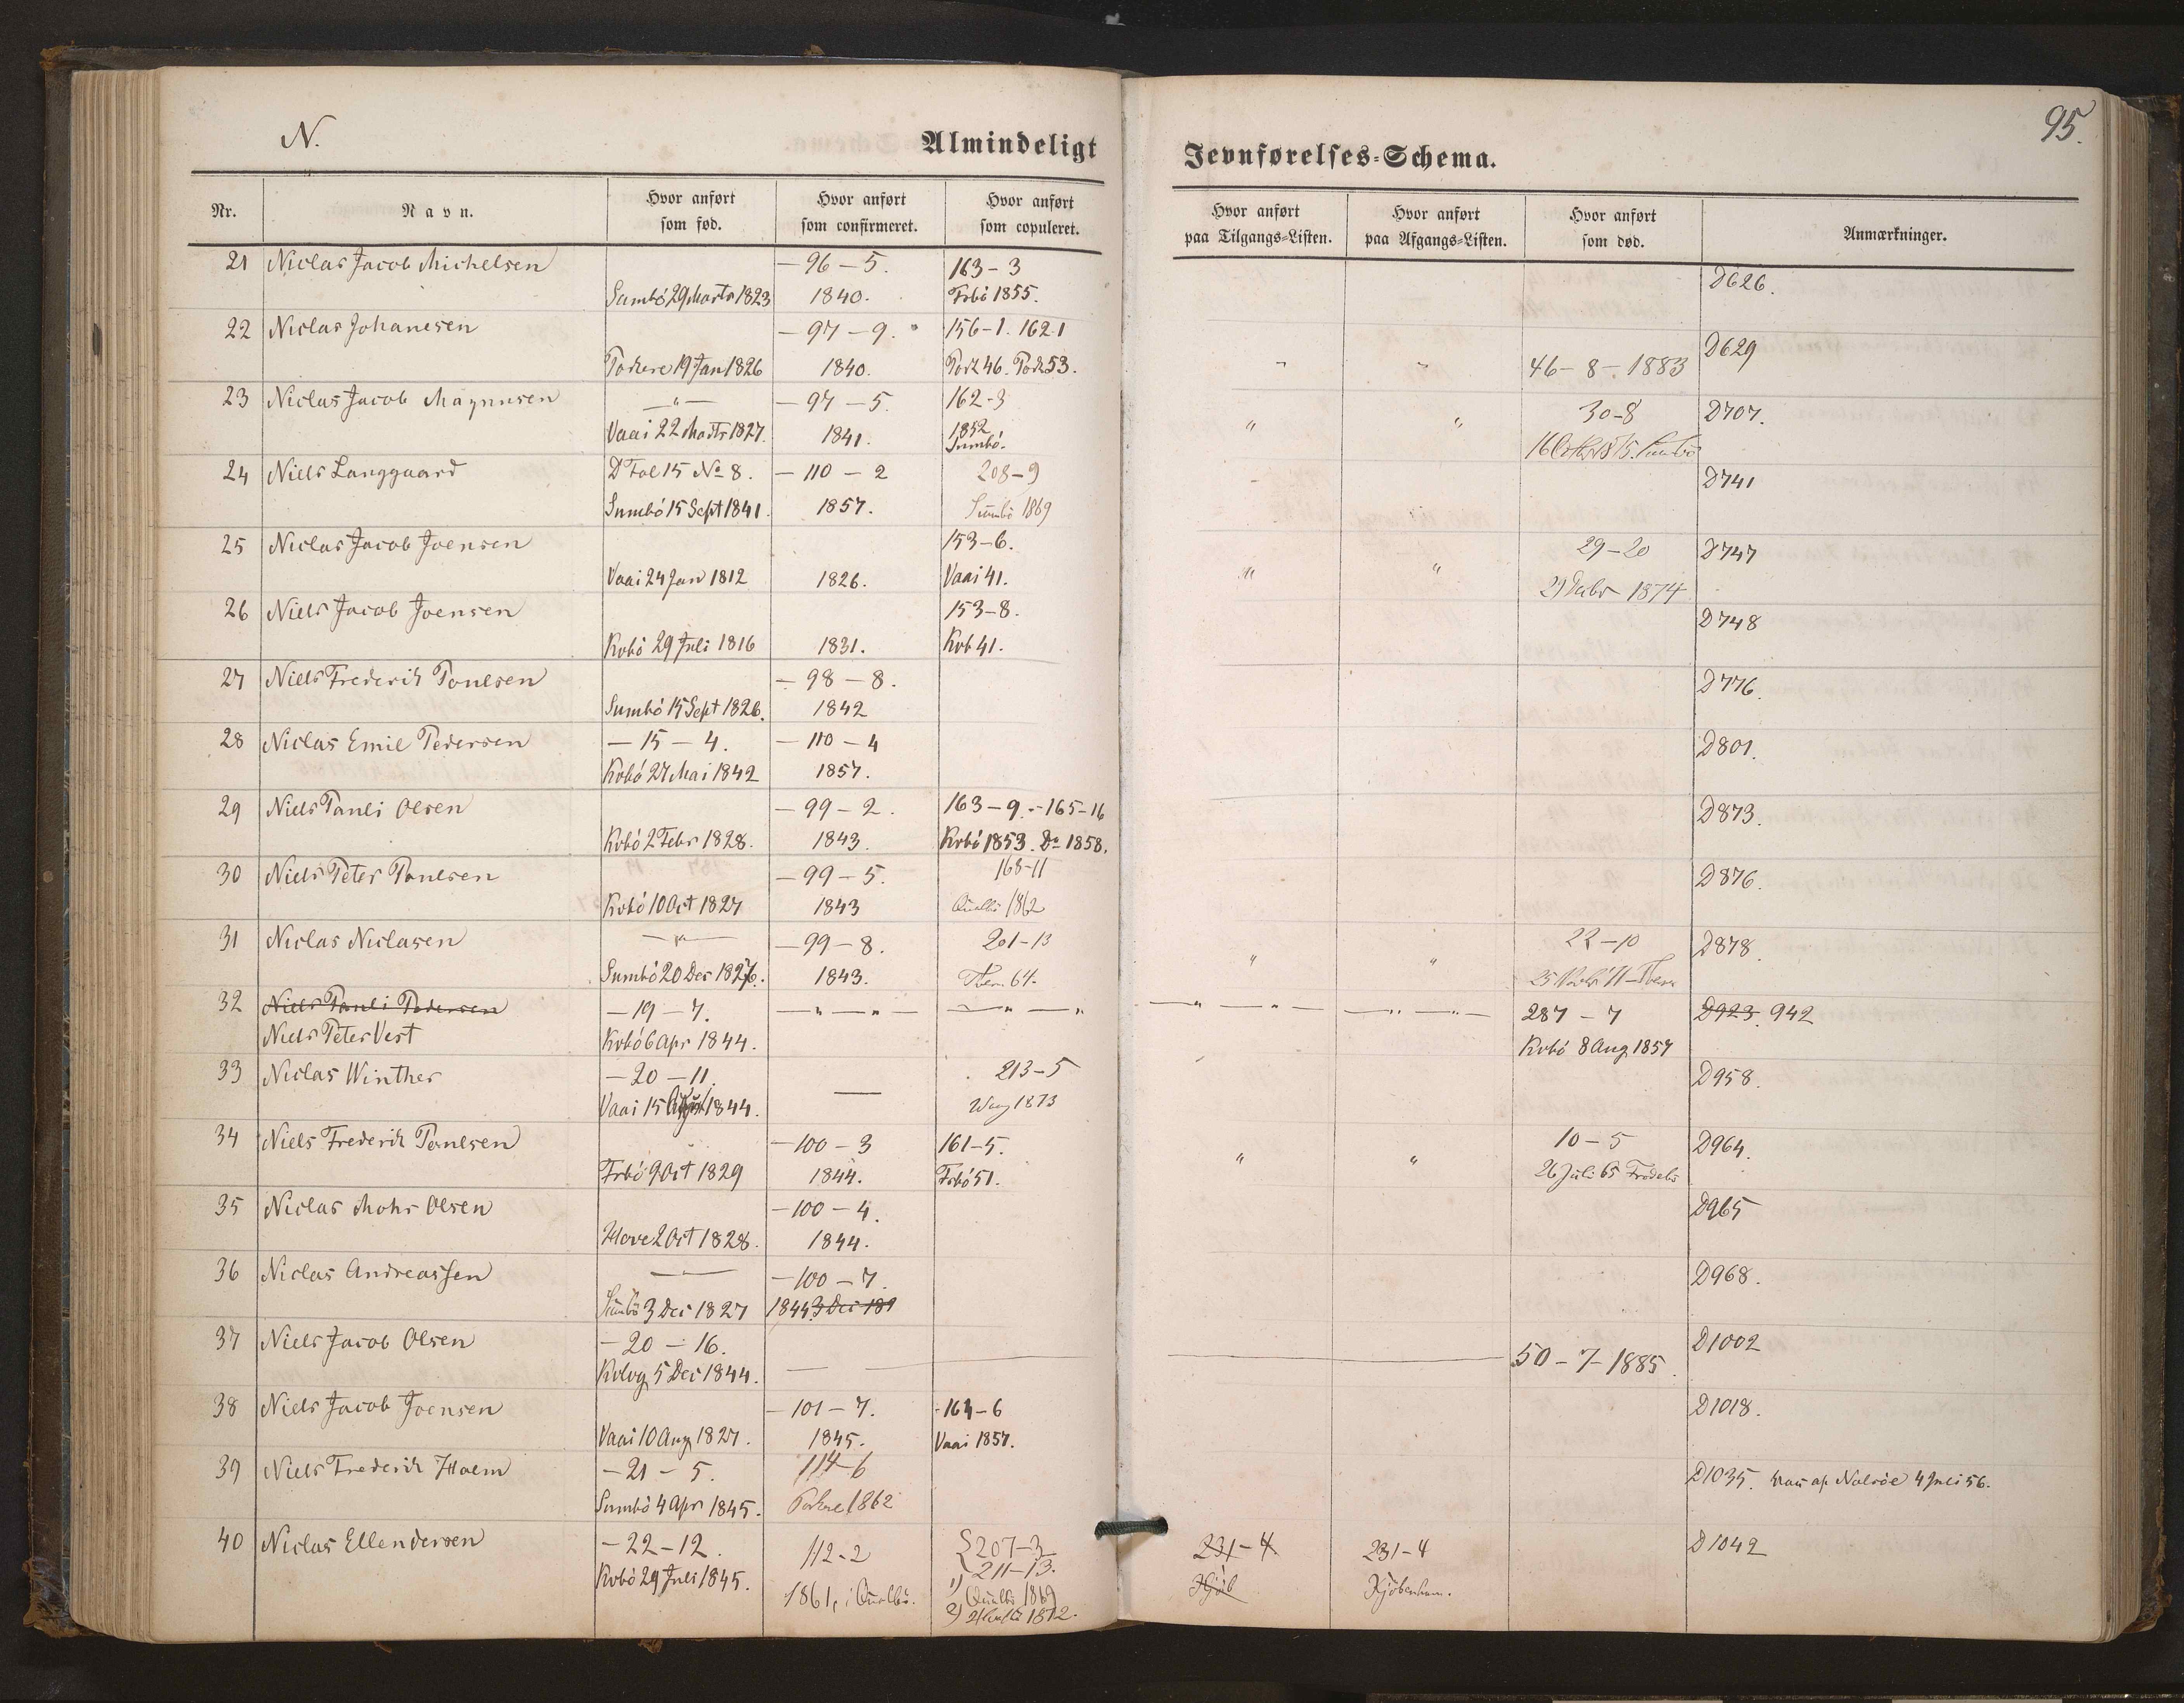 N.
Almindeligt
Jevnførelses-Schema.
95.
Nr.
Navn.
Hvor anført som fød.
Hvor anført som confirmeret.
Hvor anført som copuleret.
Hvor anført paa Tilgangs-Listen.
Hvor anført paa Afgangs-Listen.
Hvor anført som død.
Anmærkninger.
21 Niclas Jacob Michelsen — 96 – 5. 163 – 3 D626.
Sumbö 29 Marts 1823 1840. Frbö 1855.
22 Niclas Johanesen — 97 – 9. 156–1. 162–1 D629
Porkere 19 Jan 1826 1840. Pork 46. Pork 53. 46 – 8 – 1883
23 Niclas Jacob Magnusen — " — — 97 – 5. 162–3 30–8 D707.
Vaai 22 Marts 1827. 1841. 1852 Sumbö. " "
24 Niels Langgaard D Fol 15 No 8. — 110 – 2 208–9 D741
Sumbö 15 Sept 1841. 1857. Sumbö 1869
25 Niclas Jacob Joensen 153–6. 29–20 D747
Vaai 24 Jan 1812 1826. Vaai 41. " " 1874
26 Niels Jacob Joensen 153–8. D748
Kvbö 29 Juli 1816 1831. Kvb 41.
27 Niels Frederik Poulsen — 98 – 8. D776.
Sumbö 15 Sept 1826. 1842
28 Niclas Emil Pedersen — 15 – 4. — 110 – 4 D801.
Kvbö 27 Mai 1842 1857.
29 Niels Pauli Olsen — 99 – 2. 163 – 9. – 165–16 D873.
Kvbö 2 Febr 1828. 1843. Kvbö 1853. Do 1858.
30 Niels Peter Poulsen — 99 – 5. 168–11 D876.
Kvbö 10 Oct 1827 1843 Qualbö 1862
31 Niclas Niclasen — " — — 99 – 8. 201–13 22–10 D878.
Sumbö 20 Dec 1826. 1843. " "
32 Niels Pauli Pedersen — 19 – 7. — " — " — — " — " — " — " — — " — " — 287 – 7 D923. 942
Niels Peter Vest Kvbö 6 Apr 1844. Kvbö 8 Aug 1857
33 Niclas Winther — 20 – 11. 213–5 D958.
Vaai 15 August 1844. — Waag 1873
34 Niels Frederik Poulsen — 100 – 3 161–5. 10 – 5 D964.
Frbö 9 Oct 1829 1844. Frbö 51. " " 26 Juli 65 Frodebö
35 Niclas Mohr Olsen — 100 – 4. D965
Hove 2 Oct 1828. 1844.
36 Niclas Andreassen — " — — 100 – 7. D968.
Sumbö 3 Dec 1827 1844. 3 Dec 189
37 Niels Jacob Olsen — 20 – 16. D1002
Kvlvg 5 Dec 1844. — — 50 – 7 – 1885.
38 Niels Jacob Joensen — 101 – 7. 164–6 D1018.
Vaai 10 Aug 1827. 1845. Vaai 1857.
39 Niels Frederik Holm — 21 – 5. 114–6 D1035. Vacc af Nolsöe 4 Juli 56.
Sumbö 4 Apr 1845. Porkere 1862
40 Niclas Ellendersen — 22 – 12. 112–2 207–3 231–4 231–4 D1042
211–13.
Kvbö 29 Juli 1845. 1861, i Qualbö. 1) Qualbö 1869 Kjöb Kjöbenhavn.
2) 1872.